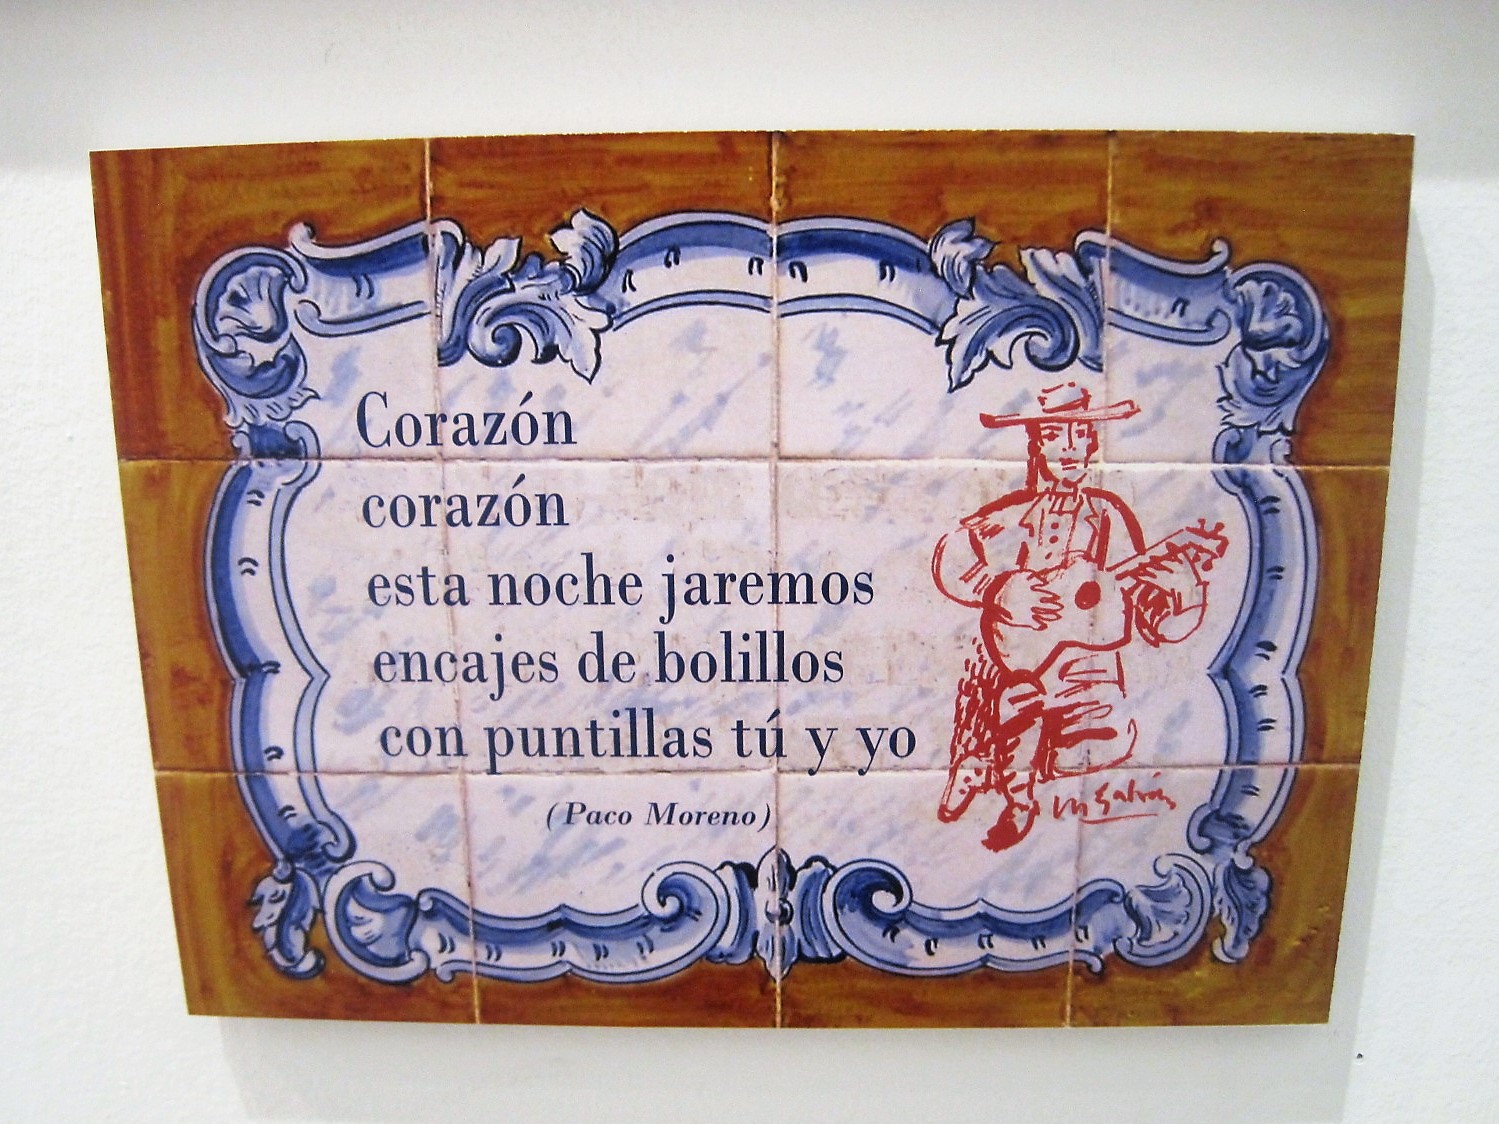 Corazón
corazón
esta noche jaremos
encajes de bolillos
con puntillas tú y yo
(Paco Moreno)